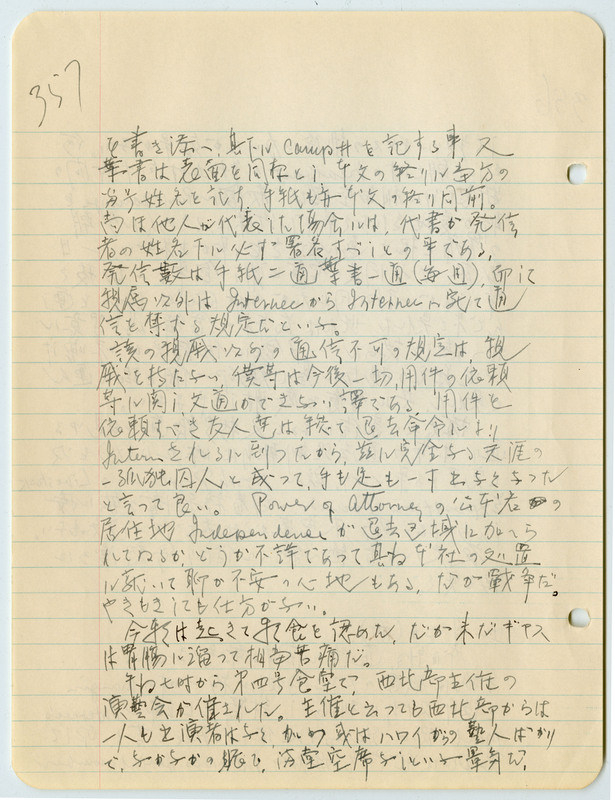 357
を書き添へ、其下に Camp # を記する事 又
葉書は表面を同様とし 本文の終りに当方の
番号姓名をしるす、手紙も亦本文の終り同前。
尚ほ他人が代表した場合には、代書が発信
者の姓名下に必ず署名すべしとの事である、
発信数は手紙二通葉書一通(毎週)、而して
親属以外は Internee から Internee に宛て通
信を禁ずる規定だといふ。
該の親戚以外の通信不可の規定は、親
戚を持たない僕等は今後一切、用件の依頼
等に関し、文通ができない譯である、用件を
依頼すべき友人達は、総て退去命令により
Intern されるに到つたから、茲に完全なる天涯の
一孤独囚人と成つて、手も足も一寸出なくなつた
と言つて良い。 Power of Attorney の 君の
居住地 Independence が退去区域に加へら
れてゐるかどうか不詳であつて 其 社の処置
に就いて聊か不安の心地もある、だが戦争だ。
やきもきしても仕方がない。
今朝は起きて朝食を認めた、だが未だギヤス
は胃腸に溜つて相当苦痛だ。
午后七時から第四号食堂で、西北部主催の
演藝会が催された。主催と云つても西北部からは
一人も出演者はなく、加 或はハワイからの藝人ばかり
で、なかなかの賑で、満堂空席なしといふ景気だ、